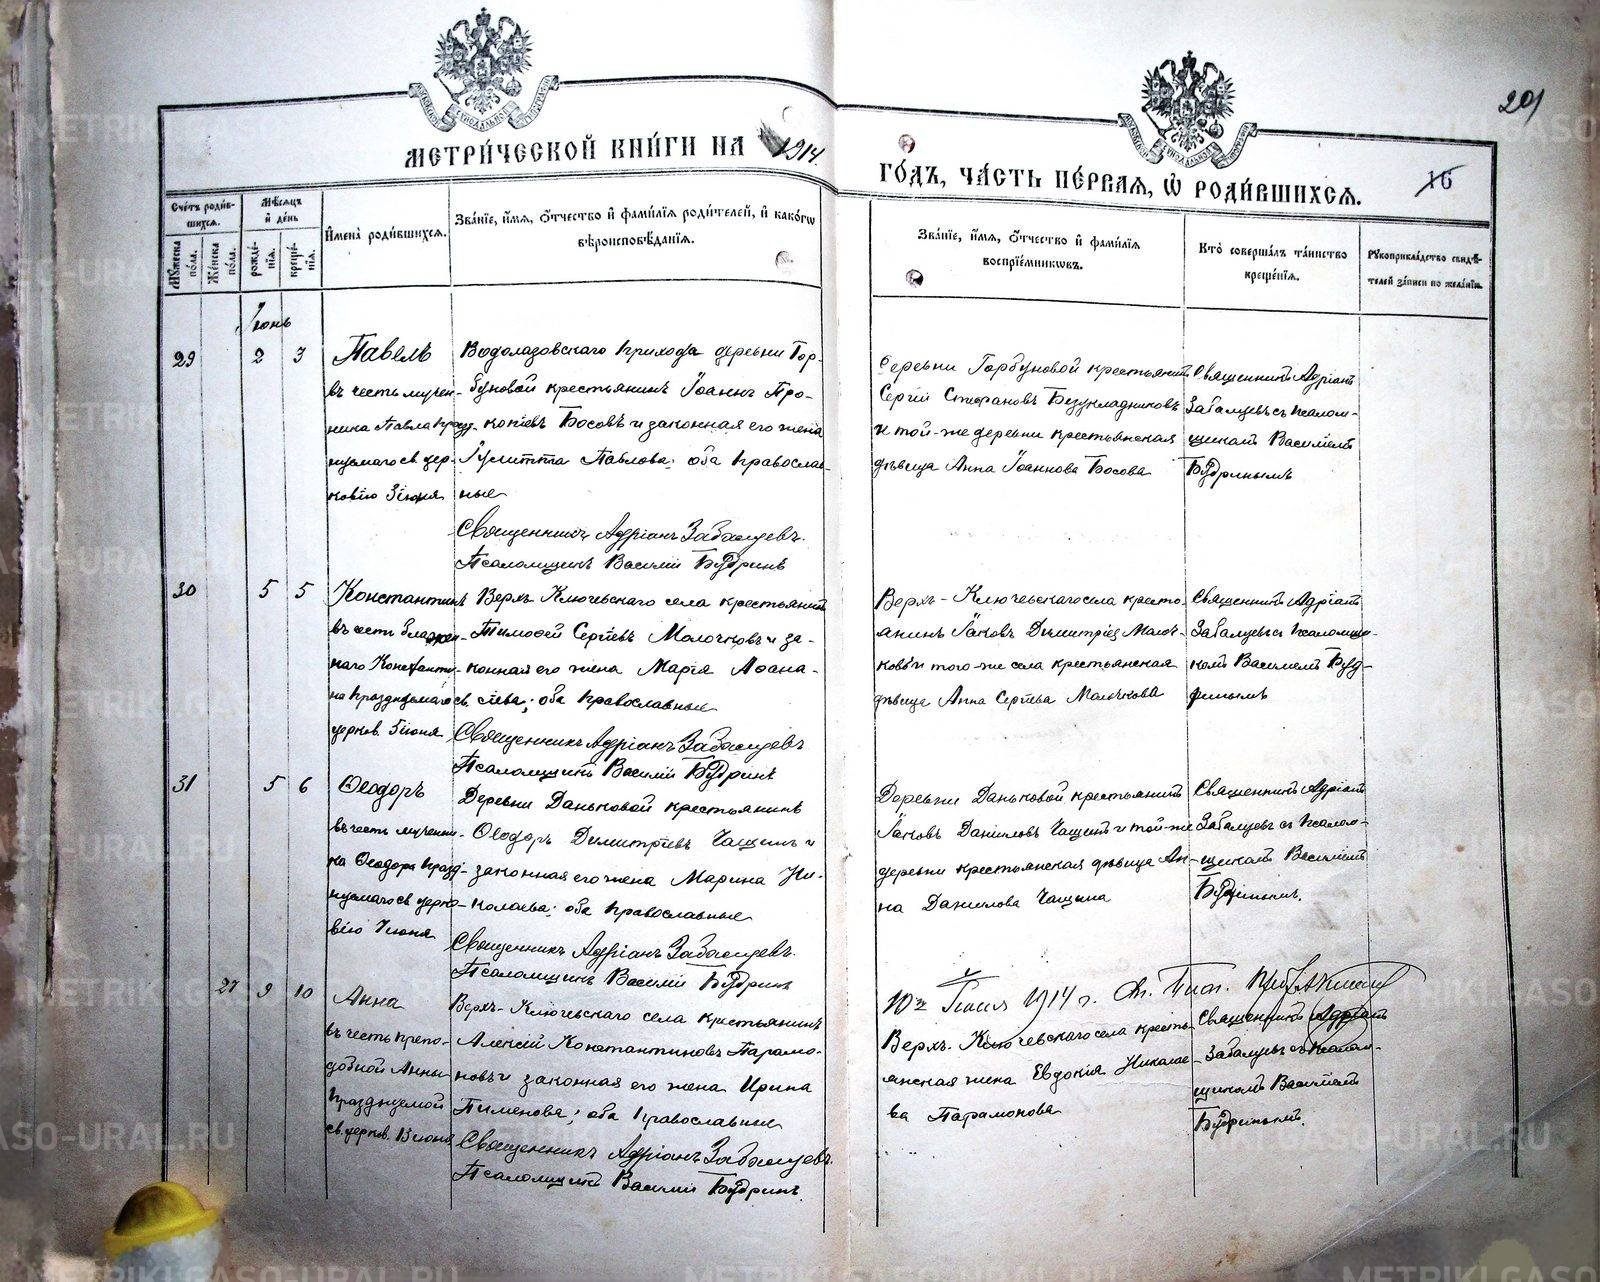 201
МЕТРИ́ЧЕСКОЙ КНИ́ГИ НА 1914
ГО́ДЪ, ЧА́СТЬ ПЕ́РВАЯ, Ѡ РОДИ́ВШИХСЯ.
16
Сче́тъ роди́в-
шихся.
Му́жеска по́ла.
Же́нска по́ла.
Мѣ́сяцъ
и҆ де́нь
рожде́нїя.
креще́нїя.
И҆мена̀ роди́вшихся.
Зва́нїе, и҆́мя, ѻ҆́тчество и҆ фами́лїя роди́телей, и҆ како́гѡ
вѣроисповѣ́данїя.
Зва́нїе, и҆́мя, ѻ҆́тчество и҆ фами́лїя
воспрїе́мникѡвъ.
Кто̀ соверша́лъ та́инство
креще́нїя.
Рꙋкоприкла́дство свидѣ́-
телей за́писи по жела́нїю.
Іюнь
29 2 3
Павелъ
въ честь мучен-
ника Павла празд-
нуемаго св. цер-
ковію 3 іюня
Водолазовскаго прихода деревни Гор-
буновой крестьянинъ Іоаннъ Про-
копіевъ Босовъ и законная его жена
Іулитта Павлова; оба православ-
ные
Священникъ Адріанъ Забалуевъ.
Псаломщикъ Василій Будринъ
Деревни Горбуновой крестьянинъ
Сергій Стефановъ Безукладниковъ
и той-же деревни крестьянская
дѣвица Анна Іоаннова Босова
Священникъ Адріанъ
Забалуевъ съ псалом-
щикомъ Василіемъ
Будринымъ
30 5 5
Константинъ
въ честь блажен-
наго Константи-
на празднуемаго св.
церков. 5 іюня
Верхъ Ключевскаго села крестьянинъ
Тимоѳей Сергѣевъ Молочковъ и за-
конная его жена Марія Аѳана-
сіева; оба православные
Священникъ Адріанъ Забалуевъ
Псаломщикъ Василій Будринъ
Верхъ-Ключевскаго села кресть-
янинъ Іаковъ Димитріев Молоч-
ковъ и того-же села крестьянская
дѣвица Анна Сергѣева Молочкова
Священникъ Адріанъ
Забалуевъ съ псаломщи-
комъ Василіемъ Буд-
ринымъ
31 5 6
Ѳеодоръ
въ честь мучени-
ка Ѳеодора празд-
нуемаго св. церко-
вію 7 іюня
Деревни Даньковой крестьянинъ
Ѳеодоръ Димитріевъ Чащинъ и
законная его жена Марина Ни-
колаева; оба православные
Священникъ Адріанъ Забалуевъ.
Псаломщикъ Василій Будринъ
Деревни Даньковой крестьянинъ
Іаковъ Даниловъ Чащинъ и той-же
деревни крестьянская дѣвица Ан-
на Данилова Чащина
Священникъ Адріанъ
Забалуевъ съ псалом-
щикомъ Василіемъ
Будринымъ.
27 9 10
Анна
въ честь препо-
добной Анны
празднуемой
св. церков. 13 іюня
Верхъ-Ключевскаго села крестьянинъ
Алексій Константиновъ Парамо-
новъ и законная его жена Ирина
Пименова; оба православные
Священникъ Адріанъ Забалуевъ.
Псаломщикъ Василій Будринъ.
1914 г.
Верхъ-Ключевскаго села кресть-
янская жена Евдокія Николае-
ва Парамонова
Священникъ Адріанъ
Забалуевъ съ псалом-
щикомъ Василіемъ
Будринымъ.
METRIKI.GASO-URAL.RU